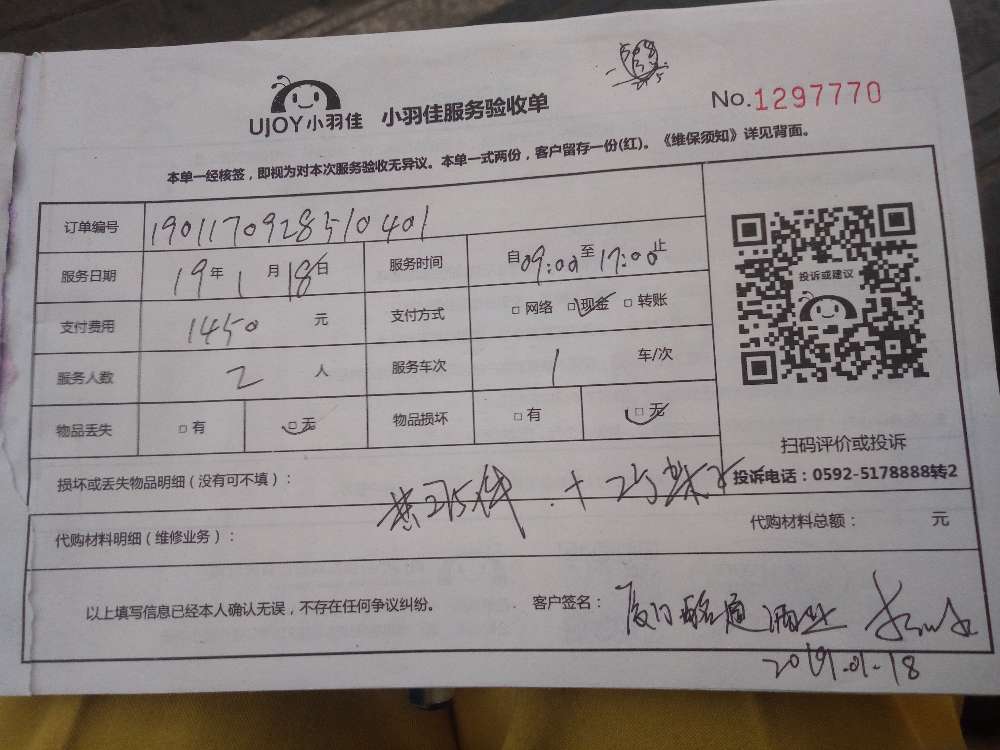 UJOY小羽佳 小羽佳服务验收单 No.1297770
本单一经核签，即视为对本次服务验收无异议。本单一式两份，客户留存一份(红)。《维保须知》详见背面。
订单编号 1901170928510401
服务日期 19年1月18日 服务时间 自09:00至17:00止
支付费用 1450 元 支付方式 □网络 □现金 □转账
服务人数 2 人 服务车次 1 车/次
物品丢失 □有 □无 物品损坏 □有 □无
投诉或建议
扫码评价或投诉
投诉电话：0592-5178888转2
损坏或丢失物品明细（没有可不填）：
代购材料明细（维修业务）： 代购材料总额： 元
以上填写信息已经本人确认无误，不存在任何争议纠纷。 客户签名： 厦门
2019.01-18